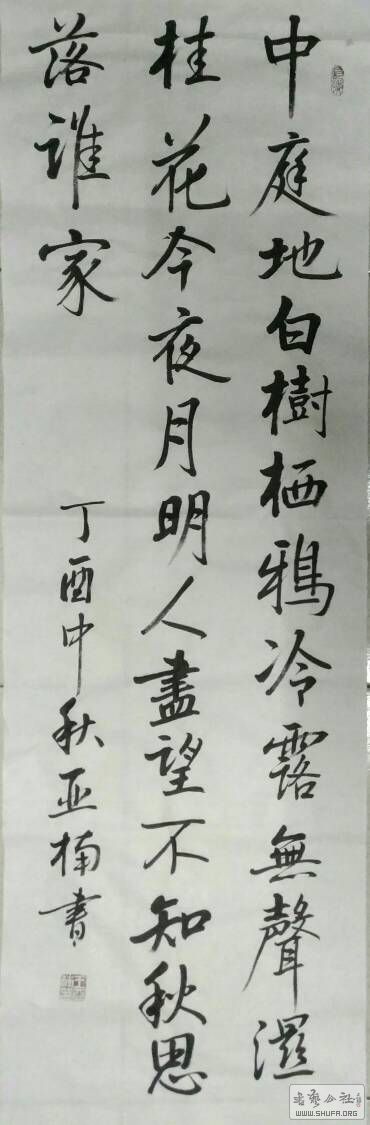 中庭地白樹栖鴉冷露無聲濕
桂花今夜月明人盡望不知秋思
落誰家
丁酉中秋亚楠書
WWW.SHUFA.ORG